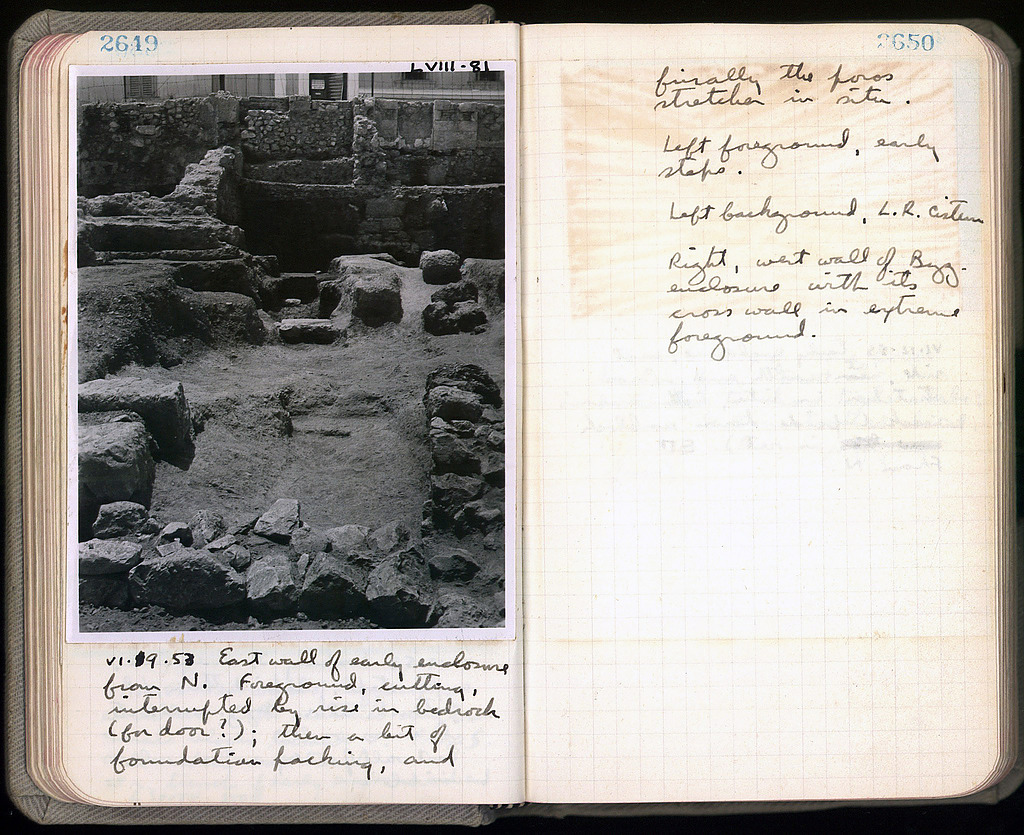 2649
LVIII-81
VI.19.53 East wall of early enclosure
from N. Foreground, cutting,
interrupted by rise in bedrock
(for door?); then a bit of
foundation packing, and
2650
finally the poros
stretcher in situ.
Left foreground, early
steps.
Left background, L.R. Cistern
Right, west wall of Byz.
enclosure with its
cross wall in extreme
foreground.